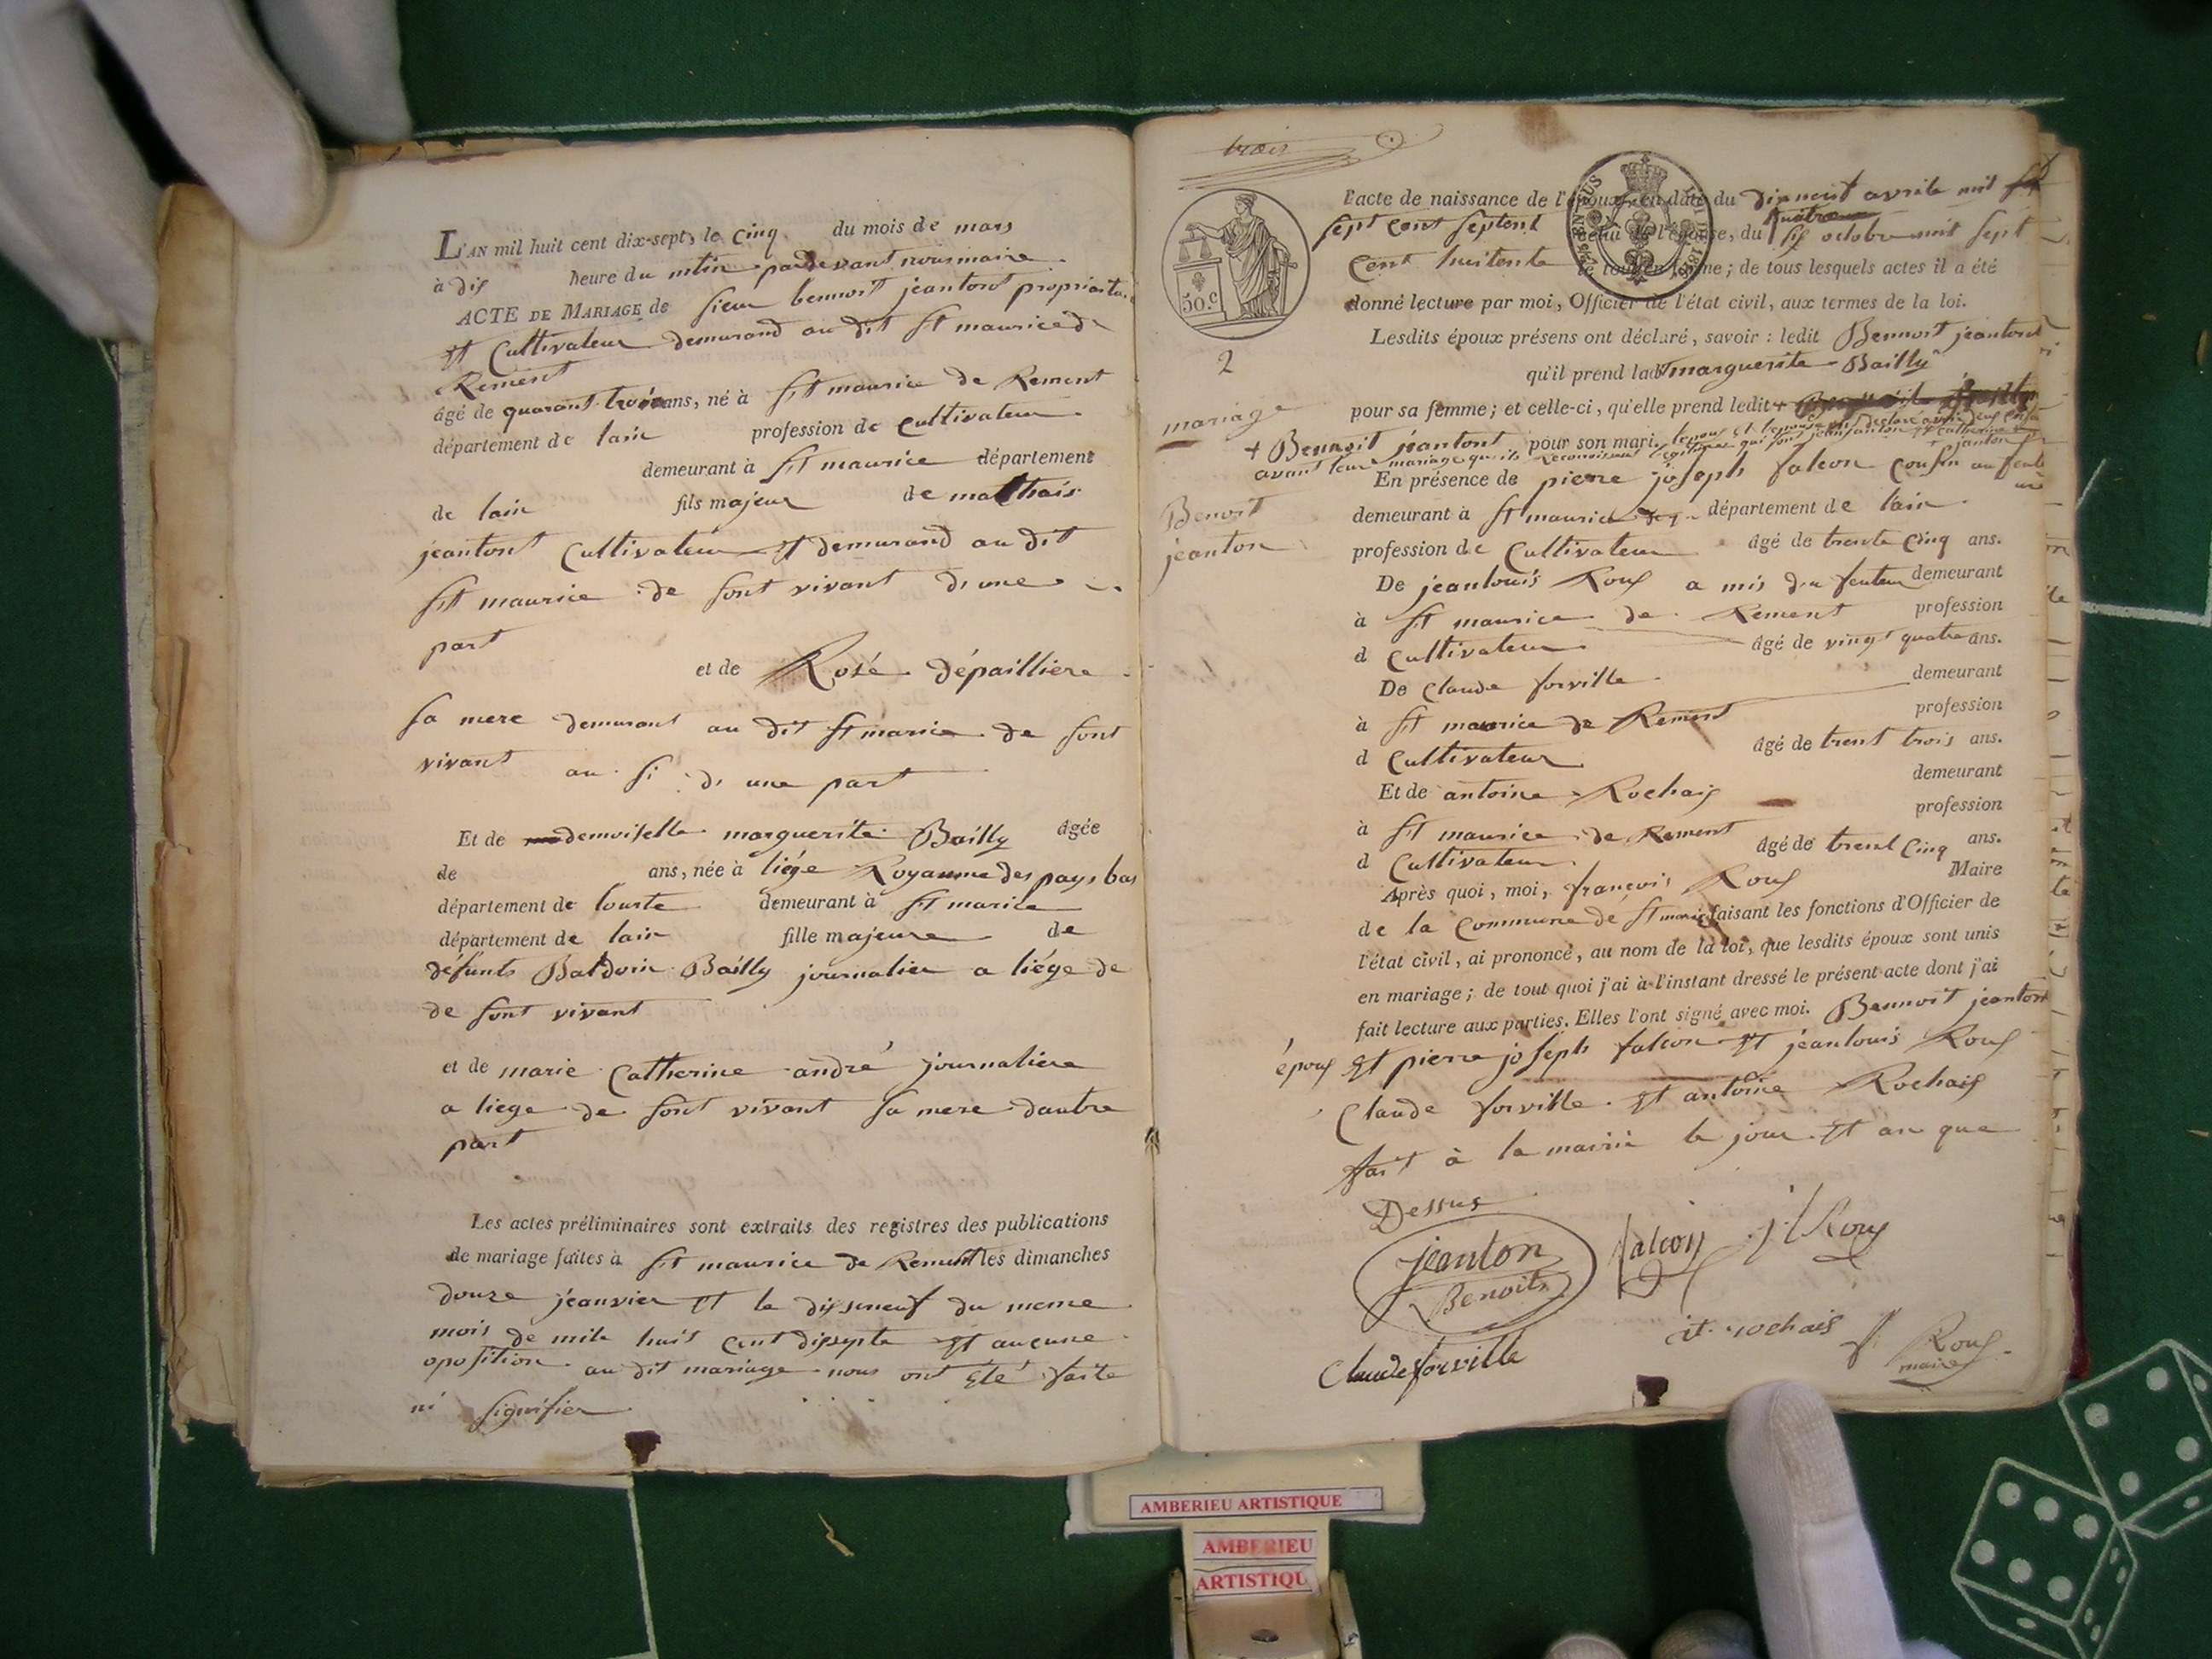 L'AN mil huit cent dix-sept, le cinq du mois de mars
à dis heure du mtin pardevant nous maire
ACTE DE MARIAGE de sieur bennoit jeantont propriaitai
et Cultivateur demurand au dit st maurice de
Rement
âgé de quarant trois ans, né à st maurice de Rement
département de lain profession de Cultivateur
demeurant à st maurice département
de lain fils majeur de mathais
jeantont Cultivateur et demurand au dit
st maurice de sont vivant d'une
part
et de Rosé dépailliere
sa mere demurant au dit st marice de sont
vivant au si d'une part
Et de demoiselle marguerite Bailly âgée
de ans, née à liége Royaume des pays bas
département de lourte demeurant à st marice
département de lain fille majeure de
défunts Baldoin Bailly journalier a liége de
de sont vivant
et de marie Catherine andré journaliere
a liege de sont vivant sa mere dautre
part
Les actes préliminaires sont extraits des registres des publications
de mariage faites à st maurice de Rement les dimanches
douze jeanvier et le disneuf du meme
mois de mile huit cent dissepte et aucune
oposition au dit mariage nous ont été faite
ni signifier
trois
l'acte de naissance de l'époux, en date du disneuf avrile mil
sept cent septent celui de l'épouse, du sis octobre mil sept
cent huitente le tout en forme; de tous lesquels actes il a été
donné lecture par moi, Officier de l'état civil, aux termes de la loi.
50.c
2
Lesdits époux présens ont déclaré, savoir : ledit Bennoit jeantont
qu'il prend lad marguerite Bailly
pour sa femme; et celle-ci, qu'elle prend ledit +
mariage
+ Bennoit jeantont pour son mari. lepous et lepouse ont declaré avoir deus enfa
avant leur mariage qu'ils reconoissent legitime qui sont jean janton et catherine
janton
En présence de pierre joseph falcon cousin au
demeurant à st maurice département de lain
Benoit
jeanton
profession de Cultivateur âgé de trente cinq ans.
De jeanlouis Rous a mis du demeurant
à st maurice de Rement profession
d Cultivateur âgé de vingt quatre ans.
De Claude forville demeurant
à st maurice de Rement profession
d Cultivateur âgé de trent trois ans.
Et de antoine Rochais demeurant
à st maurice de Rement profession
d Cultivateur âgé de trent cinq ans.
Après quoi, moi, françois Rous Maire
de la Commune de st marice faisant les fonctions d'Officier de
l'état civil, ai prononcé, au nom de la loi, que lesdits époux sont unis
en mariage; de tout quoi j'ai à l'instant dressé le présent acte dont j'ai
fait lecture aux parties. Elles l'ont signé avec moi. Bennoit jeantont
épous et pierre joseph falcon et jeanlouis Rous
Claude forville et antoine Rochais
fait à la mairie le jour et an que
Dessus
jeanton
Benoit
falcon
j l Rous
Claude forville
at rochais
f Rous
maire
AMBERIEU ARTISTIQUE
AMBERIEU
ARTISTIQU